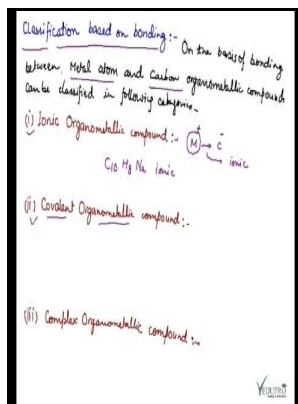 Classification based on bonding :- On the basis of bonding
between Metal atom and Carbon organometallic compounds
can be classified in following categories-
(i) Ionic Organometallic compound :- M+ → C- ionic
C10 H8 Na ionic
(ii) Covalent Organometallic compound :-
(iii) Complex Organometallic compound :-
VEDUPRO